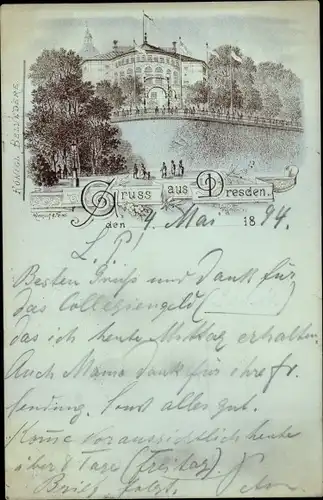 KÖNIGL. BELVEDERE
Gruss aus Dresden.
den 4. Mai 1894.
L. P!
Besten Gruß und Dank für
das Collegiengeld
das ich heute Mittag erhalten.
Auch Mama dankt für ihre
Sendung. Sonst alles gut.
Komme voraussichtlich heute
über 8 Tage (Freitag).
Brief folgt.